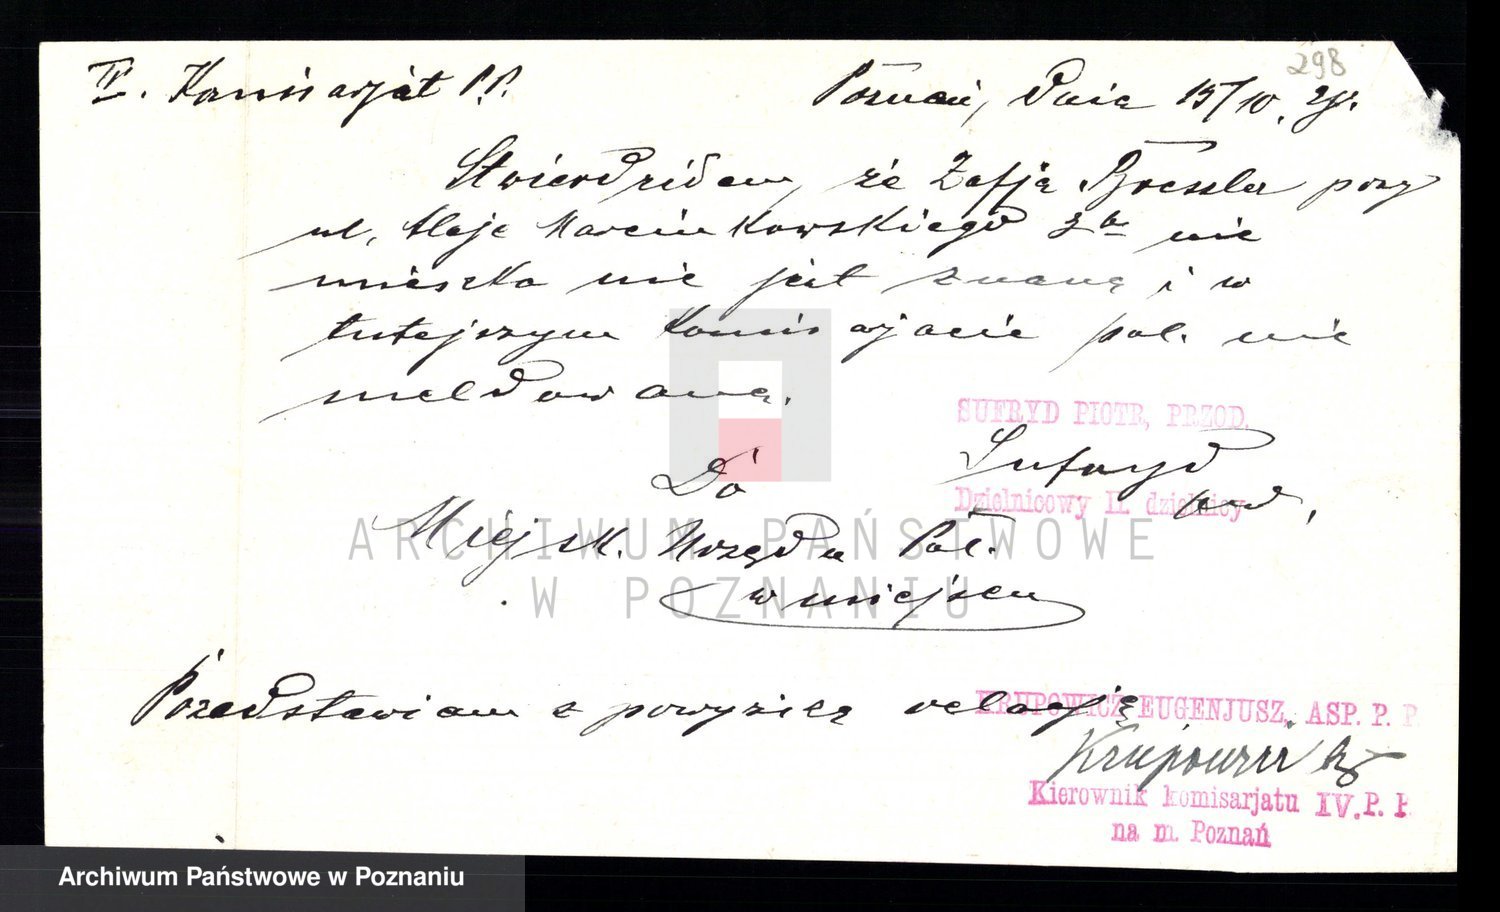 298
IV. Komisarjat P.P. Poznań, dnia 15/10. 
Stwierdziłem, że Zofja Bressler przy
ul. Aleje Marcinkowskiego 3a nie
mieszka nie jest znaną i w
tutejszym Komisarjacie pol. nie
meldowaną.
SUFRYD PIOTR, PRZOD.
Sufryd
Dzielnicowy II. dzielnicy
Do
Miejsk. Urzędu Pol.
w miejscu
Przedstawiam z powyższą relacją
KRUPOWICZ EUGENJUSZ, ASP. P. P.
Krupowicz
Kierownik komisarjatu IV. P. P.
na m. Poznań
ARCHIWUM PAŃSTWOWE
W POZNANIU
Archiwum Państwowe w Poznaniu